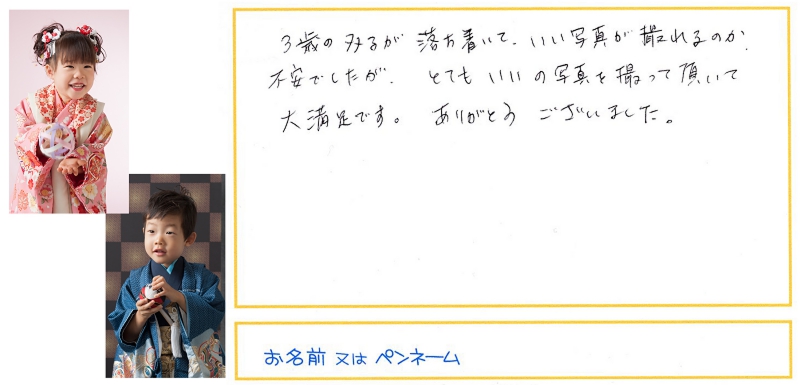 3歳の双子が 落ち着いて、いい写真が撮れるのか、
不安でしたが、とてもいいの写真を撮って頂いて
大満足です。 ありがとう ございました。
お名前 又は ペンネーム